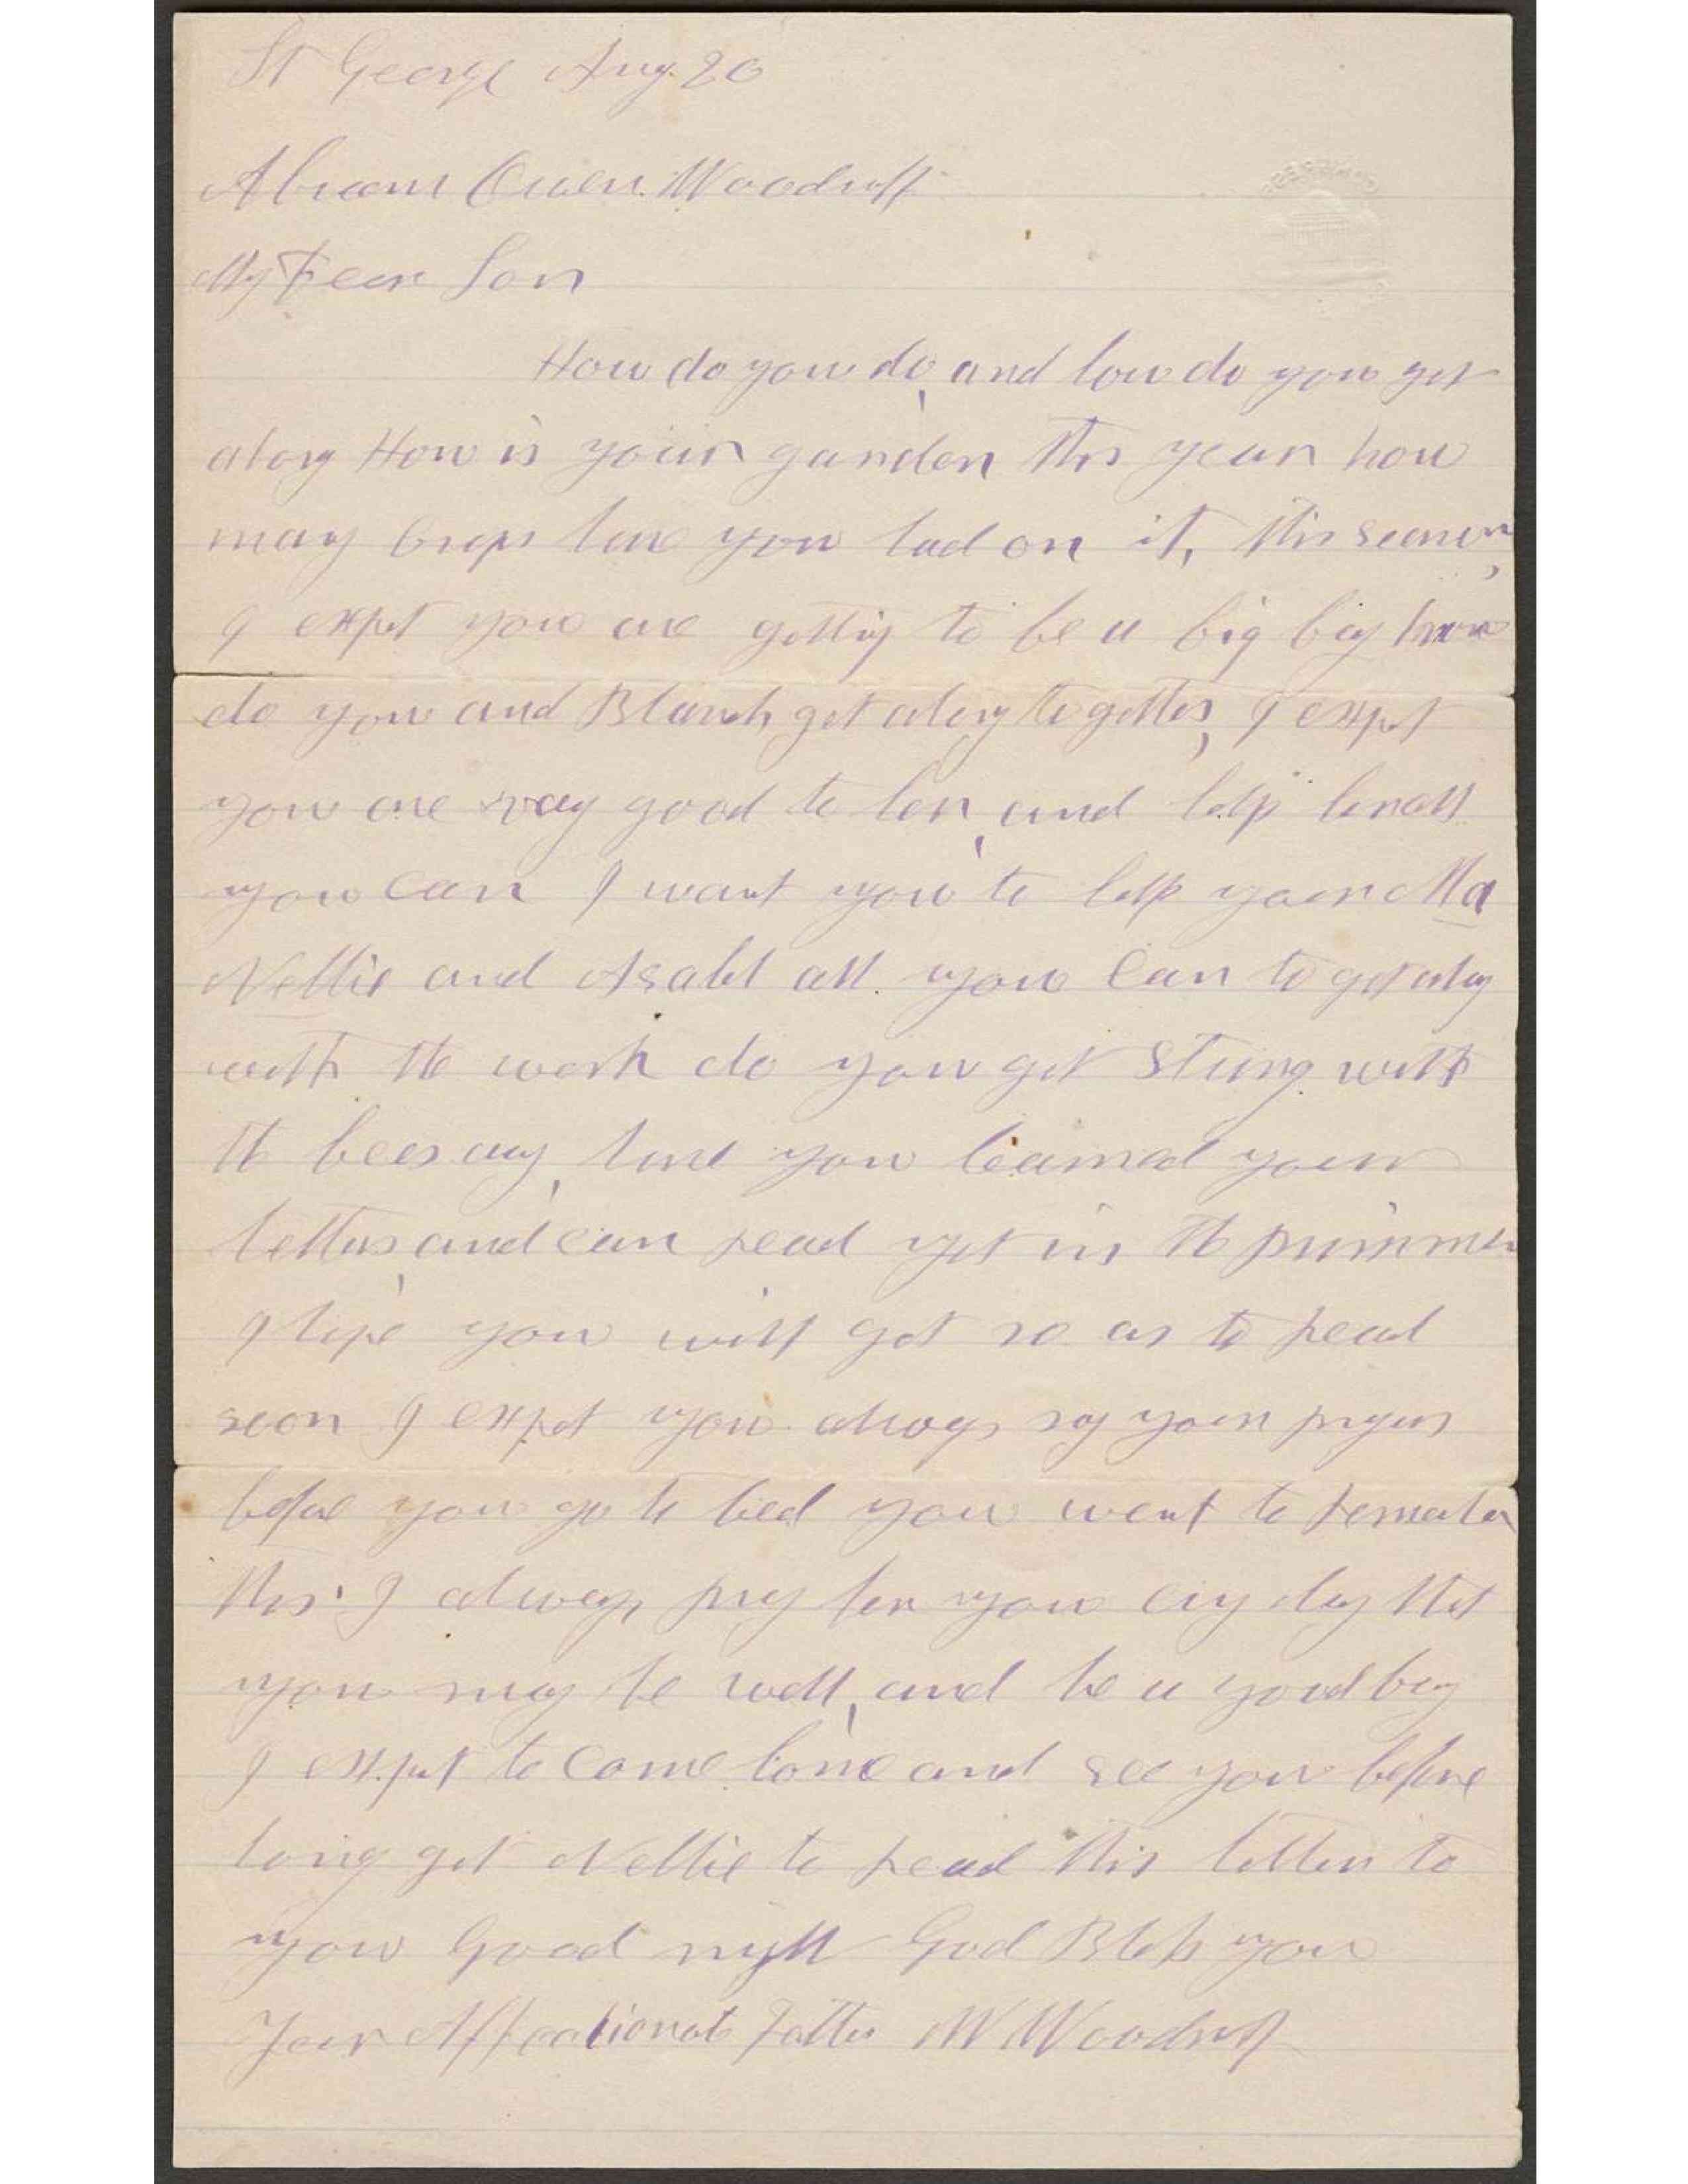 St George Aug. 20
Abram Owen Woodruff
My Dear Son
How do you do, and how do you get
along How is your garden this year how
may Crops have you had on it, this season,
I expet you are gettig to be a big boy how
do you and Blanch get along together, I expet
you are vary good to her, and help her all
you can I want you to help your Ma
Nellie and Asahel all you Can to get alog
with the work do you get Stung with
the bees any, have you learned your
letters, and can read yet in the primmer
I hope you will get so as to read
soon I expet you always say your prayers
before you go to bed you want to remember
this. I always pray for you evry day that
you may be well, and be a good boy
I expet to Come home and see you before
long get Nellie to read this letter to
you Good night God Bless you
Your Affectionate Father W Woodruff